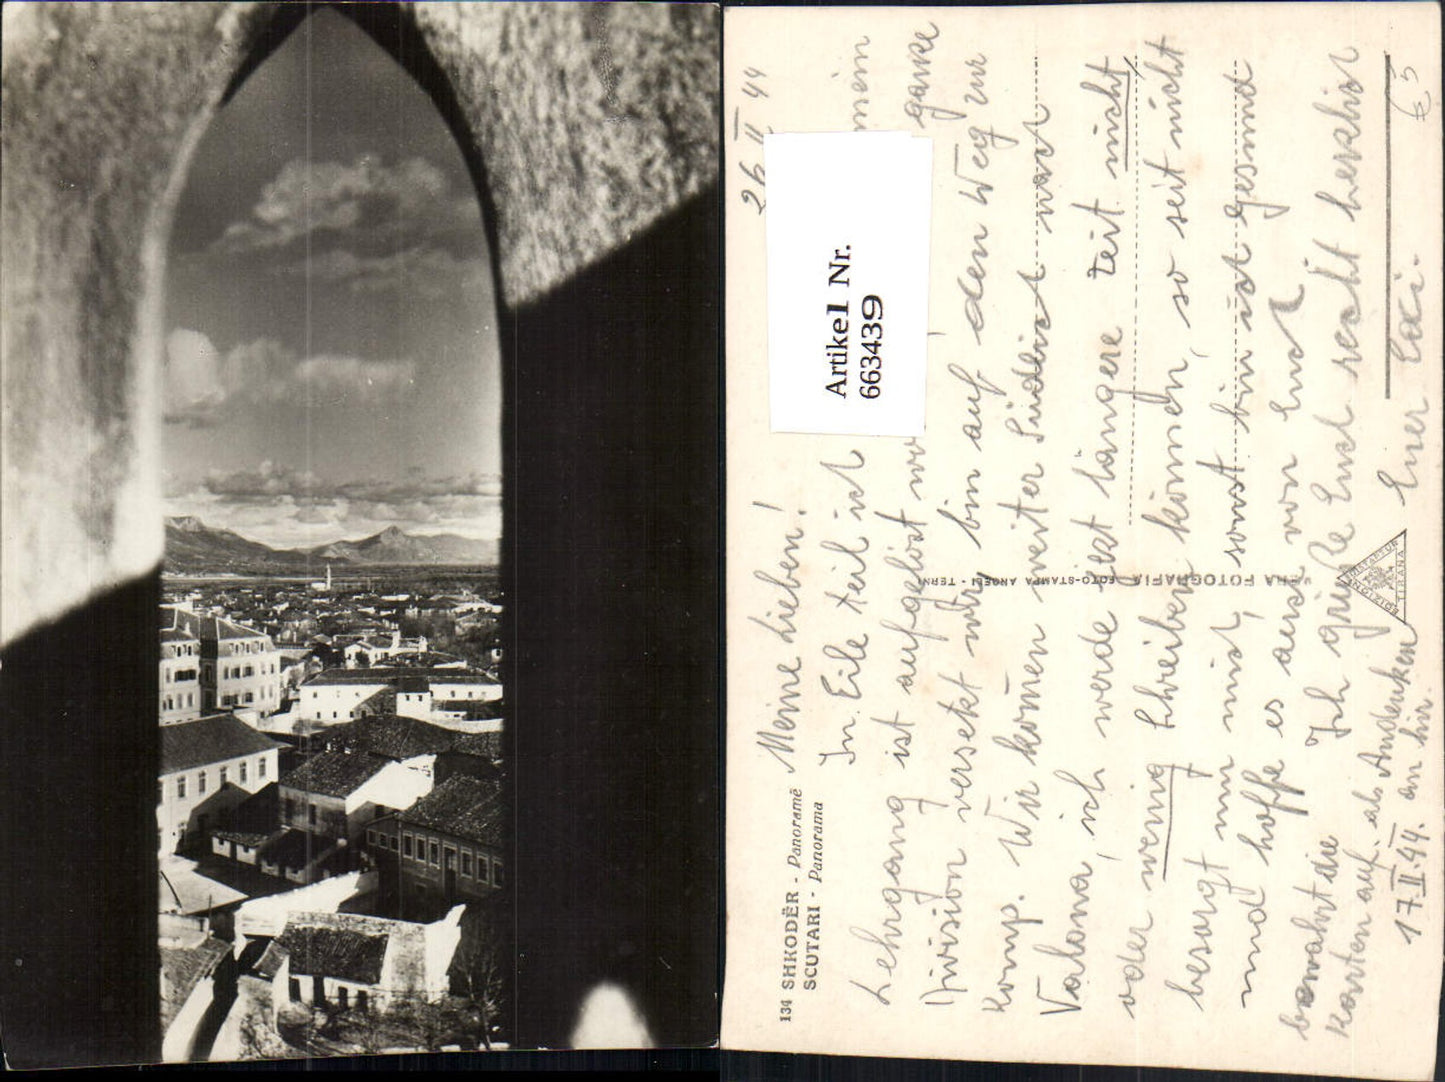 26 II 44
134 SHKODËR - Panoramë
SCUTARI - Panorama
Artikel Nr.
663439
Meine Lieben!
In Eile teil ist mein
Lehrgang ist aufgelöst wo ganze
Division versetzt wird bin auf den Weg zur
Komp. Wir komen weiter Südlist nach
Valona, ich werde jetzt längere Zeit nicht
oder wenig schreiben können, so seit nicht
besorgt um mich, sonst bin ich gesund
und hoffe es auch von Euch
Ich grüße Euch recht herzlich
Euer Edi.
bewahrt die
Karten auf. als Andenken
17. II. 44. an hir.
VERA FOTOGRAFIA
FOTO-STAMPA ANGELI - TERNI
TIRANA
63